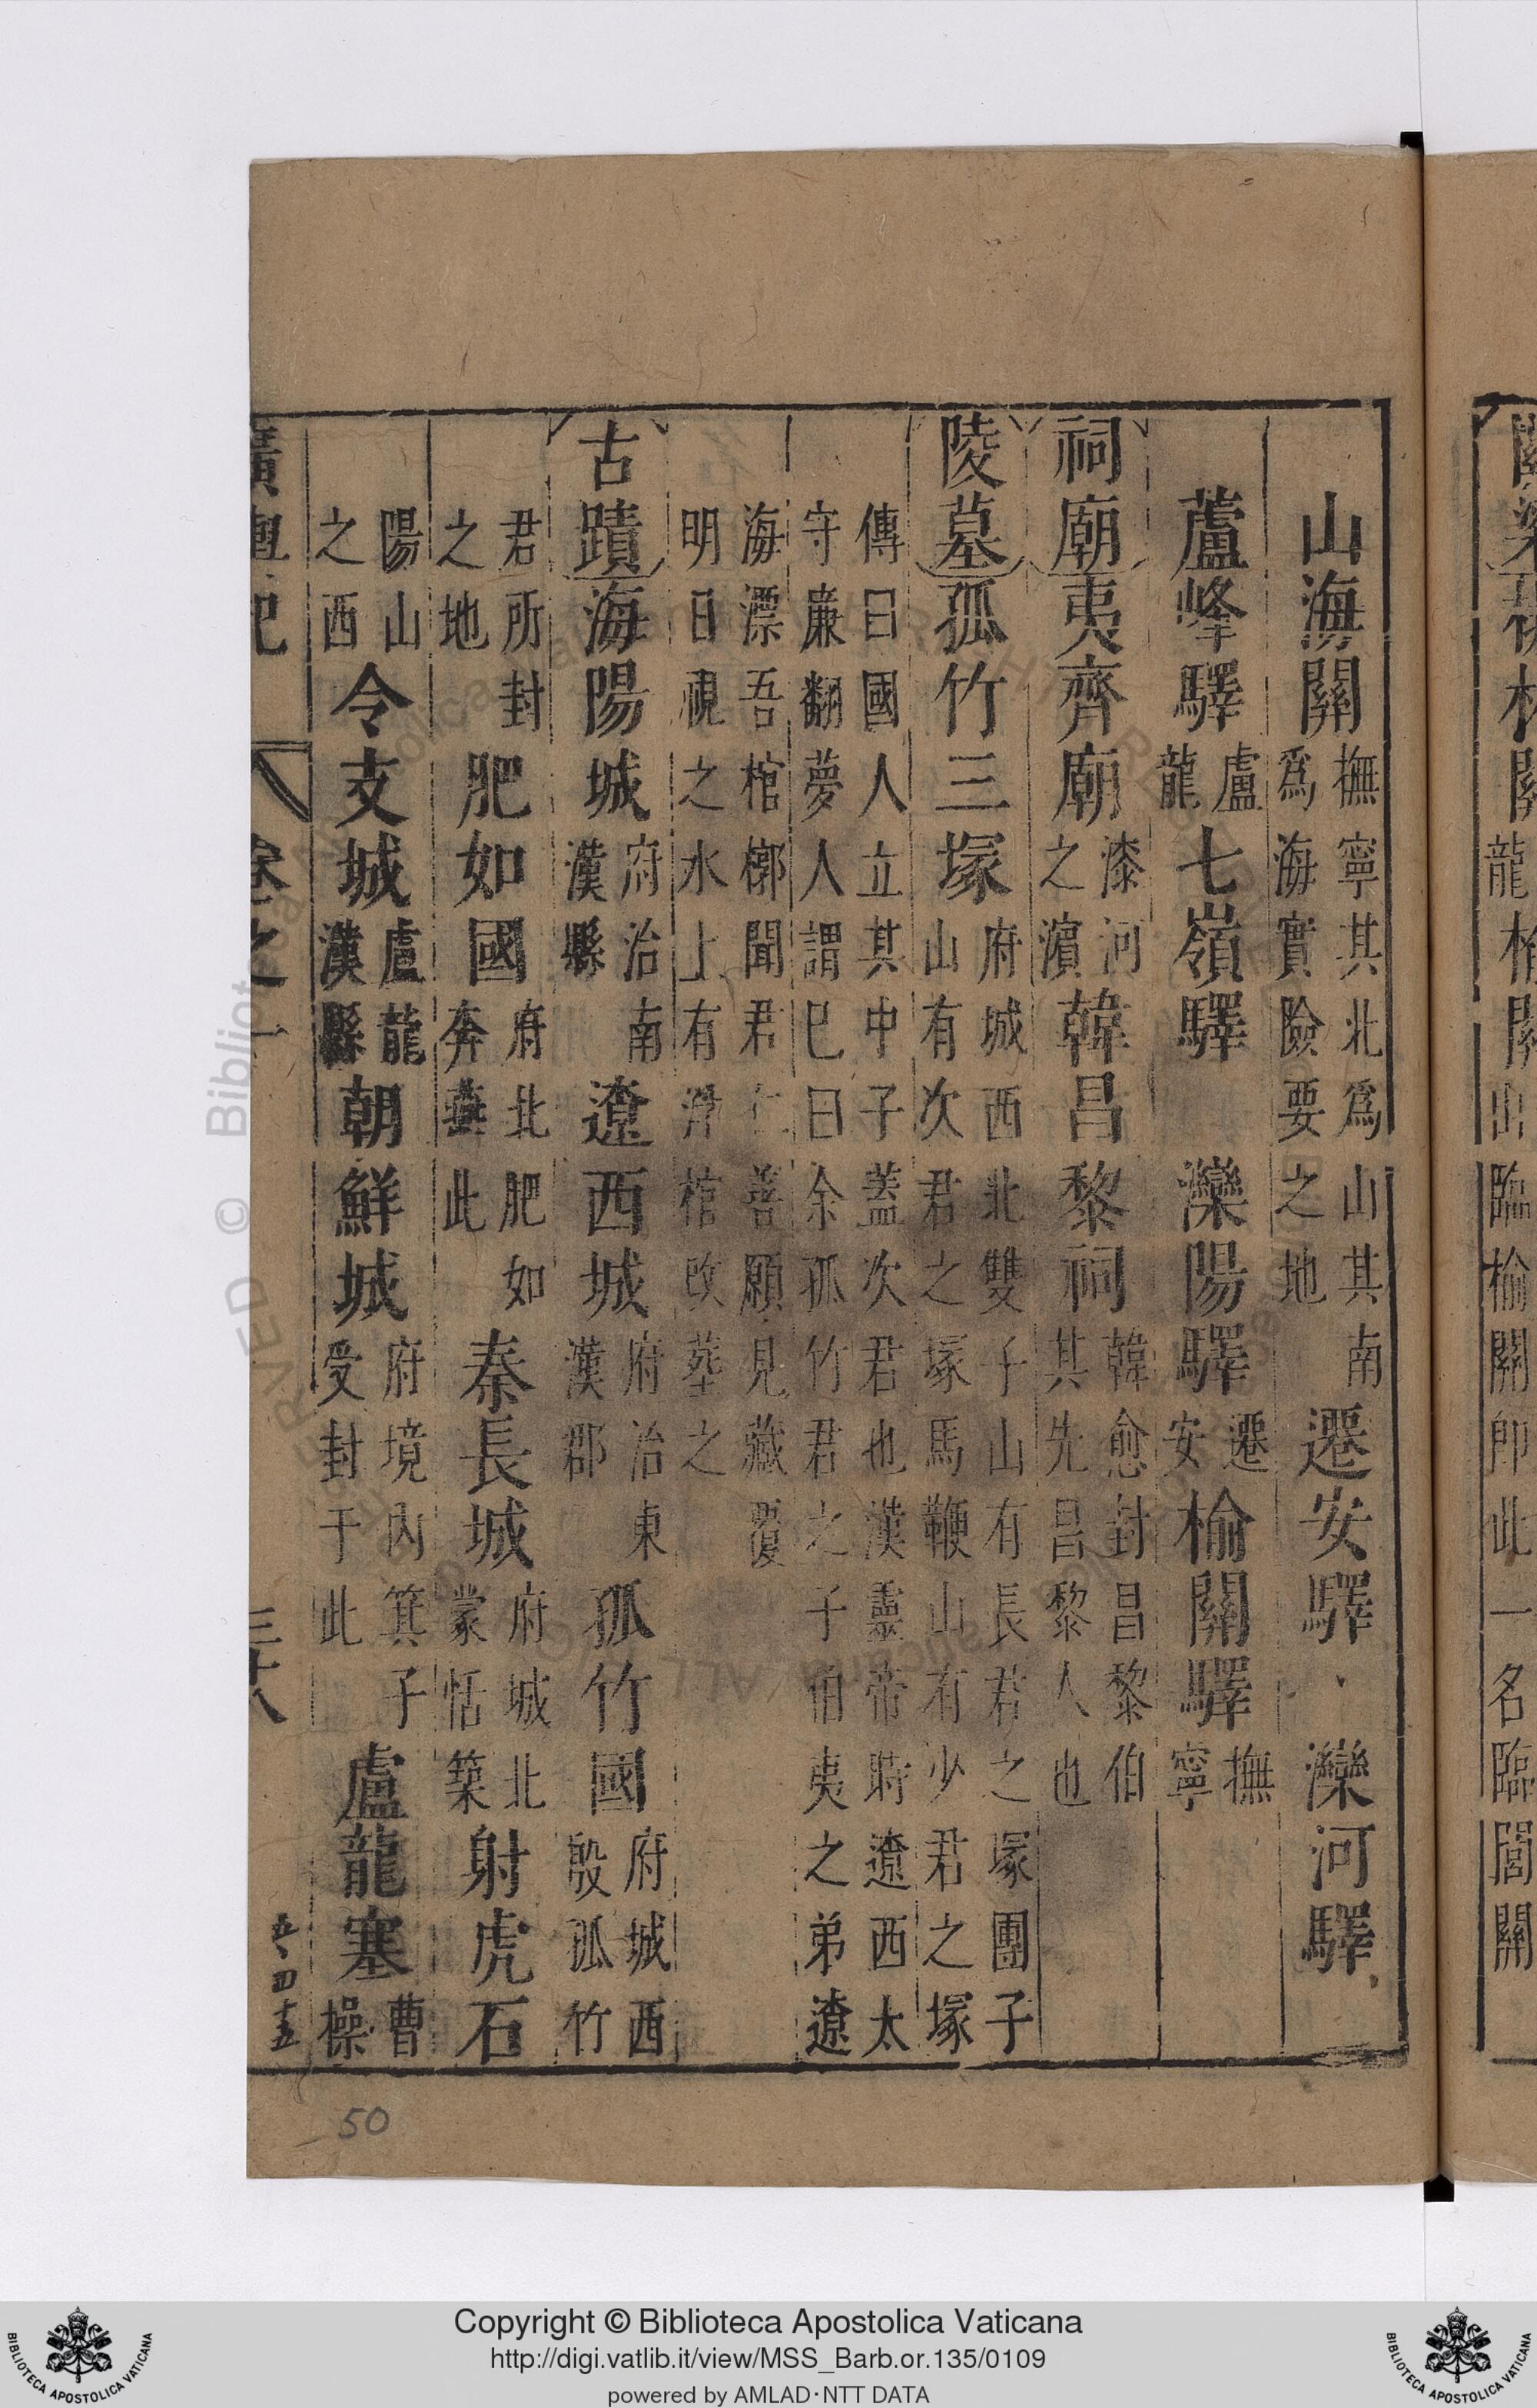 山海關撫寧其北為山其南為海實險要之地遷安驛灤河驛
蘆峰驛盧龍七嶺驛灤陽驛遷安榆關驛撫寧
祠廟夷齊廟漆河之濵韓昌黎祠韓愈封昌黎伯其先昌黎人也
陵墓孤竹三塚府城西北雙子山有長君之塚團子山有次君之塚馬鞭山有少君之塚
傳曰國人立其中子蓋次君也漢靈帝時遼西太守廉翻夢人謂巳曰余孤竹君之子伯夷之弟遼
海漂吾棺槨聞君仁善願見藏覆明日視之水上有浮棺改葬之
古蹟海陽城府治南漢縣遼西城府治東漢郡孤竹國府城西殷孤竹
君所封之地肥如國府北肥如奔燕此秦長城府城北蒙恬築射虎石
陽山之西令支城盧龍漢縣朝鮮城府境內箕子受封于此盧龍塞曹操
廣輿記 卷之一 三十八
五四十五
50
龍
出臨榆關即此一名臨閭關
Copyright © Biblioteca Apostolica Vaticana
http://digi.vatlib.it/view/MSS_Barb.or.135/0109
powered by AMLAD·NTT DATA
BIBLIOTECA APOSTOLICA VATICANA
BIBLIOTECA APOSTOLICA VATICANA